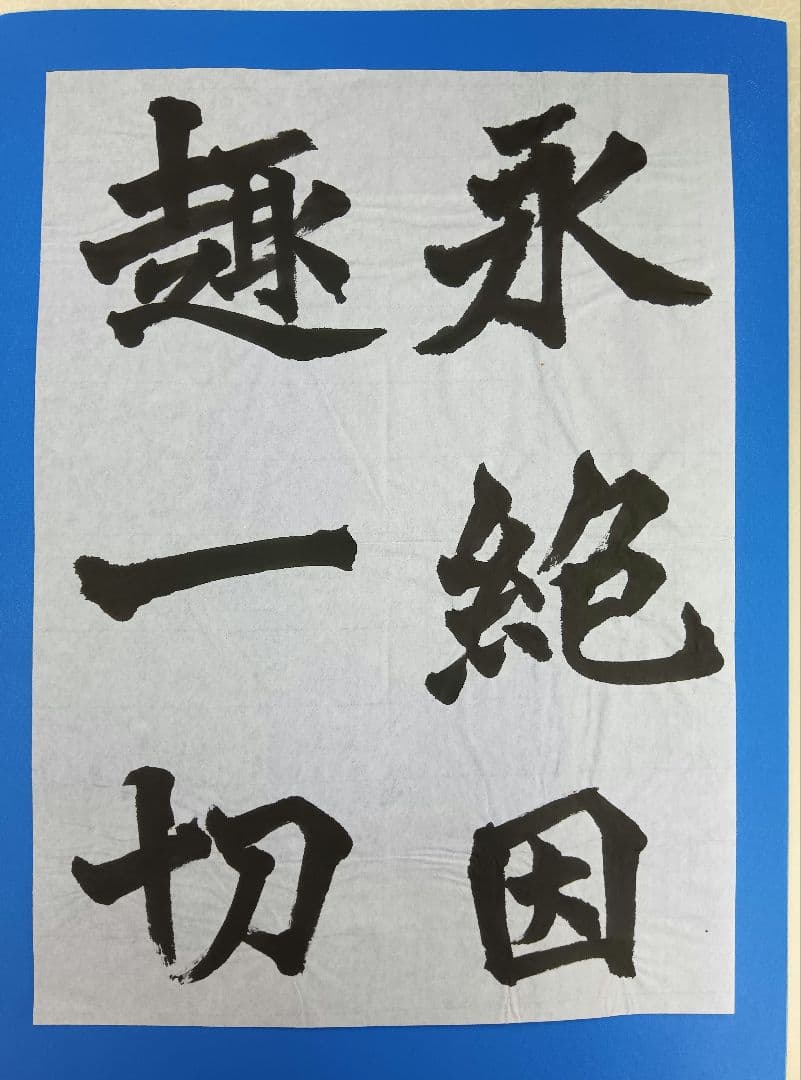 永絶因
趣一切